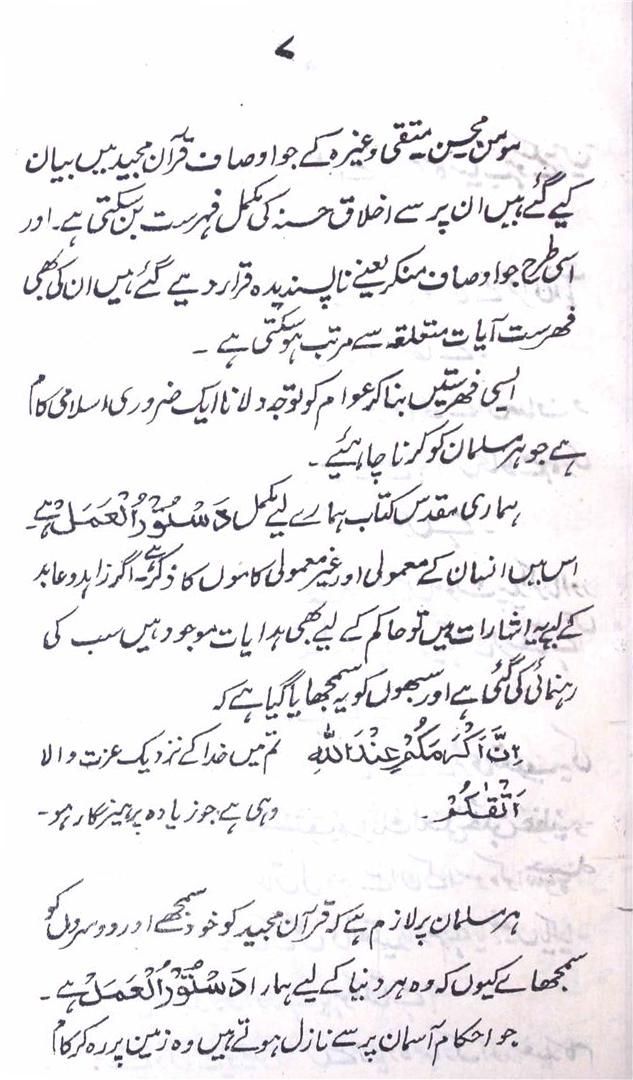 ۷
مومن محسن متقی وغیرہ کے جو اوصاف قرآن مجید میں بیان
کیے گئے ہیں ان پر سے اخلاق حسنہ کی مکمل فہرست بن سکتی ہے۔ اور
اسی طرح جو اوصاف منکر یعنے ناپسندیدہ قرار دیے گئے ہیں ان کی بھی
فہرست آیات متعلقہ سے مرتب ہو سکتی ہے ۔
ایسی فہرستیں بنا کر عوام کو توجہ دلانا ایک ضروری اسلامی کام
ہے جو ہر مسلمان کو کرنا چاہئیے ۔
ہماری مقدس کتاب ہمارے لیے مکمل دَسْتُوْرُالْعَمَلْ ہے۔
اس میں انسان کے معمولی اور غیر معمولی کاموں کا ذکر ہے۔ اگر زاہد و عابد
کے لیے یہ اشارات ہیں تو حاکم کے لیے بھی ہدایات موجود ہیں سب کی
رہنمائی کی گئی ہے اور سبھوں کو یہ سمجھایا گیا ہے کہ
اِنَّ اَکْرَمَکُمْ عِنْدَاللّٰہِ تم میں خدا کے نزدیک عزت والا
اَتْقٰکُمْ۔ وہی ہے جو زیادہ پرہیزگار ہو۔
ہر مسلمان پر لازم ہے کہ قرآن مجید کو خود سمجھے اور دوسروں کو
سمجھائے کیوں کہ وہ ہر دنیا کے لیے ہمارا دَسْتُوْرُالْعَمَلْ ہے۔
جو احکام آسمان پر سے نازل ہوتے ہیں وہ زمین پر رہ کر کام